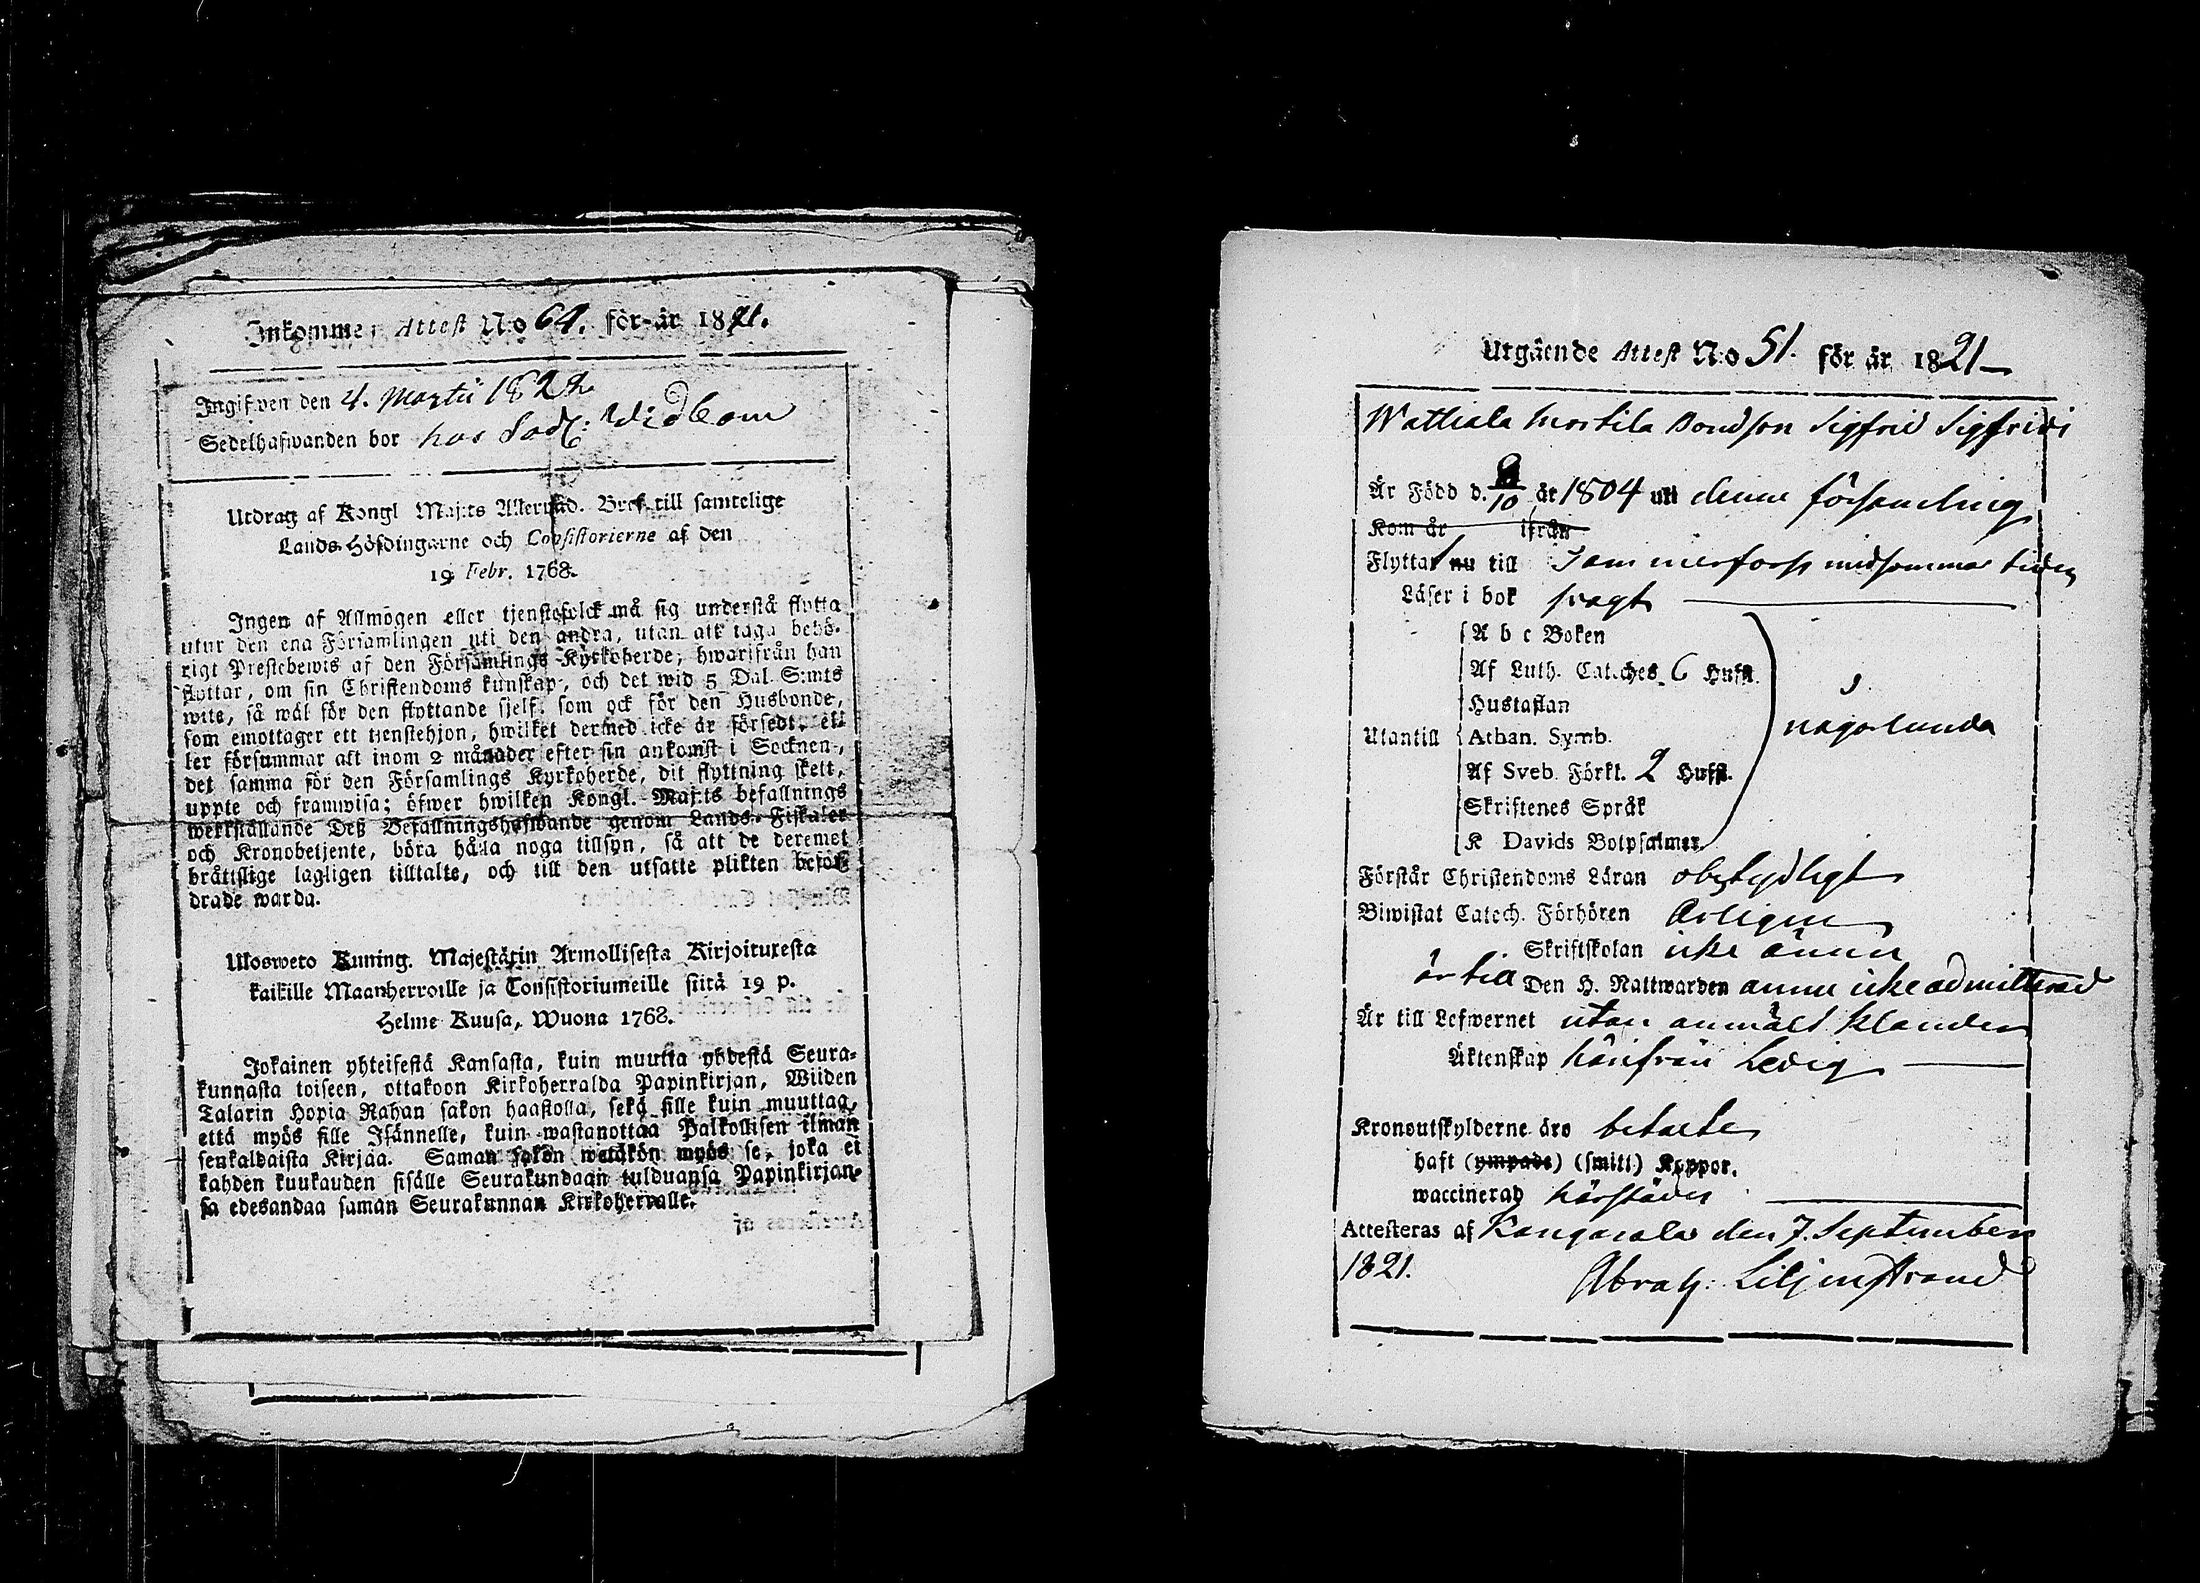 Inkommen Attest N:o 64. för år 1821.
Ingifwen den 4. Martii 1822
Sedelhafwanden bor hos Sadl: Widbom
Utdrag af Kongl Maj:ts Allernåd. Bref till samtelige
Lands-Höfdingarne och Consistorierne af den
19 Febr. 1768.
Ingen af Allmögen eller tjenstefolck må sig understå flytta
utur den ena Församlingen uti den andra, utan att taga behö-
rigt Prestebewis af den Församlings Kyrkoherde, hwarifrån han
flyttar, om sin Christendoms kunskap, och det wid 5 Dal. S:mts
wite, så wäl för den flyttande sjelf, som ock för den Husbonde,
som emottager ett tjenstehjon, hwilket dermed icke är försedt, el-
ler försummar att inom 2 månader efter sin ankomst i Socknen,
det samma för den Församlings Kyrkoherde, dit flyttning skett,
uppte och framwisa; öfwer hwilken Kongl. Maj:ts befallnings
werkställande Deß Befallningshafwande genom Lands-Fiskaler
och Kronobetjente, böra hålla noga tillsyn, så att de deremot
bråttslige lagligen tilltalte, och till den utsatte plikten beför-
drade warda.
Ulosweto Kuning. Majestätin Armollisesta Kirjoituxesta
kaikille Maanherroille ja Consistoriumeille siitä 19 p.
Helme Kuusa, Wuona 1768.
Jokainen yhteisestä Kansasta, kuin muutta yhdestä Seura-
kunnasta toiseen, ottakoon Kirkoherralda Papinkirjan, Wiiden
Talarin Hopia Rahan sakon haastolla, sekä sille kuin muuttaa,
että myös sille Isännelle, kuin wastanottaa Palkollisen ilman
senkaldaista Kirjaa. Saman sakon wetäkön myös se, joka ei
kahden kuukauden sisälle Seurakundaan tulduansa Papinkirjan-
sa edesandaa saman Seurakunnan Kirkoherralle.
Utgående Attest N:o 51. för år 1821
Wattiala Mortila Bondson Sigfrid Sigfridi
Är Född d. 8/10 år 1804 uti denne församling
Kom år ifrån
Flyttat nu till Tammerforss midsommars tiden
Läser i bok swagt
A b c Boken
Af Luth. Catches. 6 Hufst.
Hustaflan
Utantill Athan. Symb. någorlunda
Af Sveb. Förkl. 2 Hufst.
Skriftenes Språk
K Davids Botpsalmer
Förstår Christendoms Läran obetydligt
Biwistat Catech. Förhören Årligen
Skriftskolan icke ännu
är till Den H. Nattwarden ännu icke admitterad
Är till Lefwernet utan anmält klander
Äktenskap härifrån Ledig
Kronoutskylderne äro betalte
haft (ympade) (smitt) Koppor.
waccinerad härstädes
Attesteras af Kangasala den 7. September
1821. Abrah: Liljenstrand